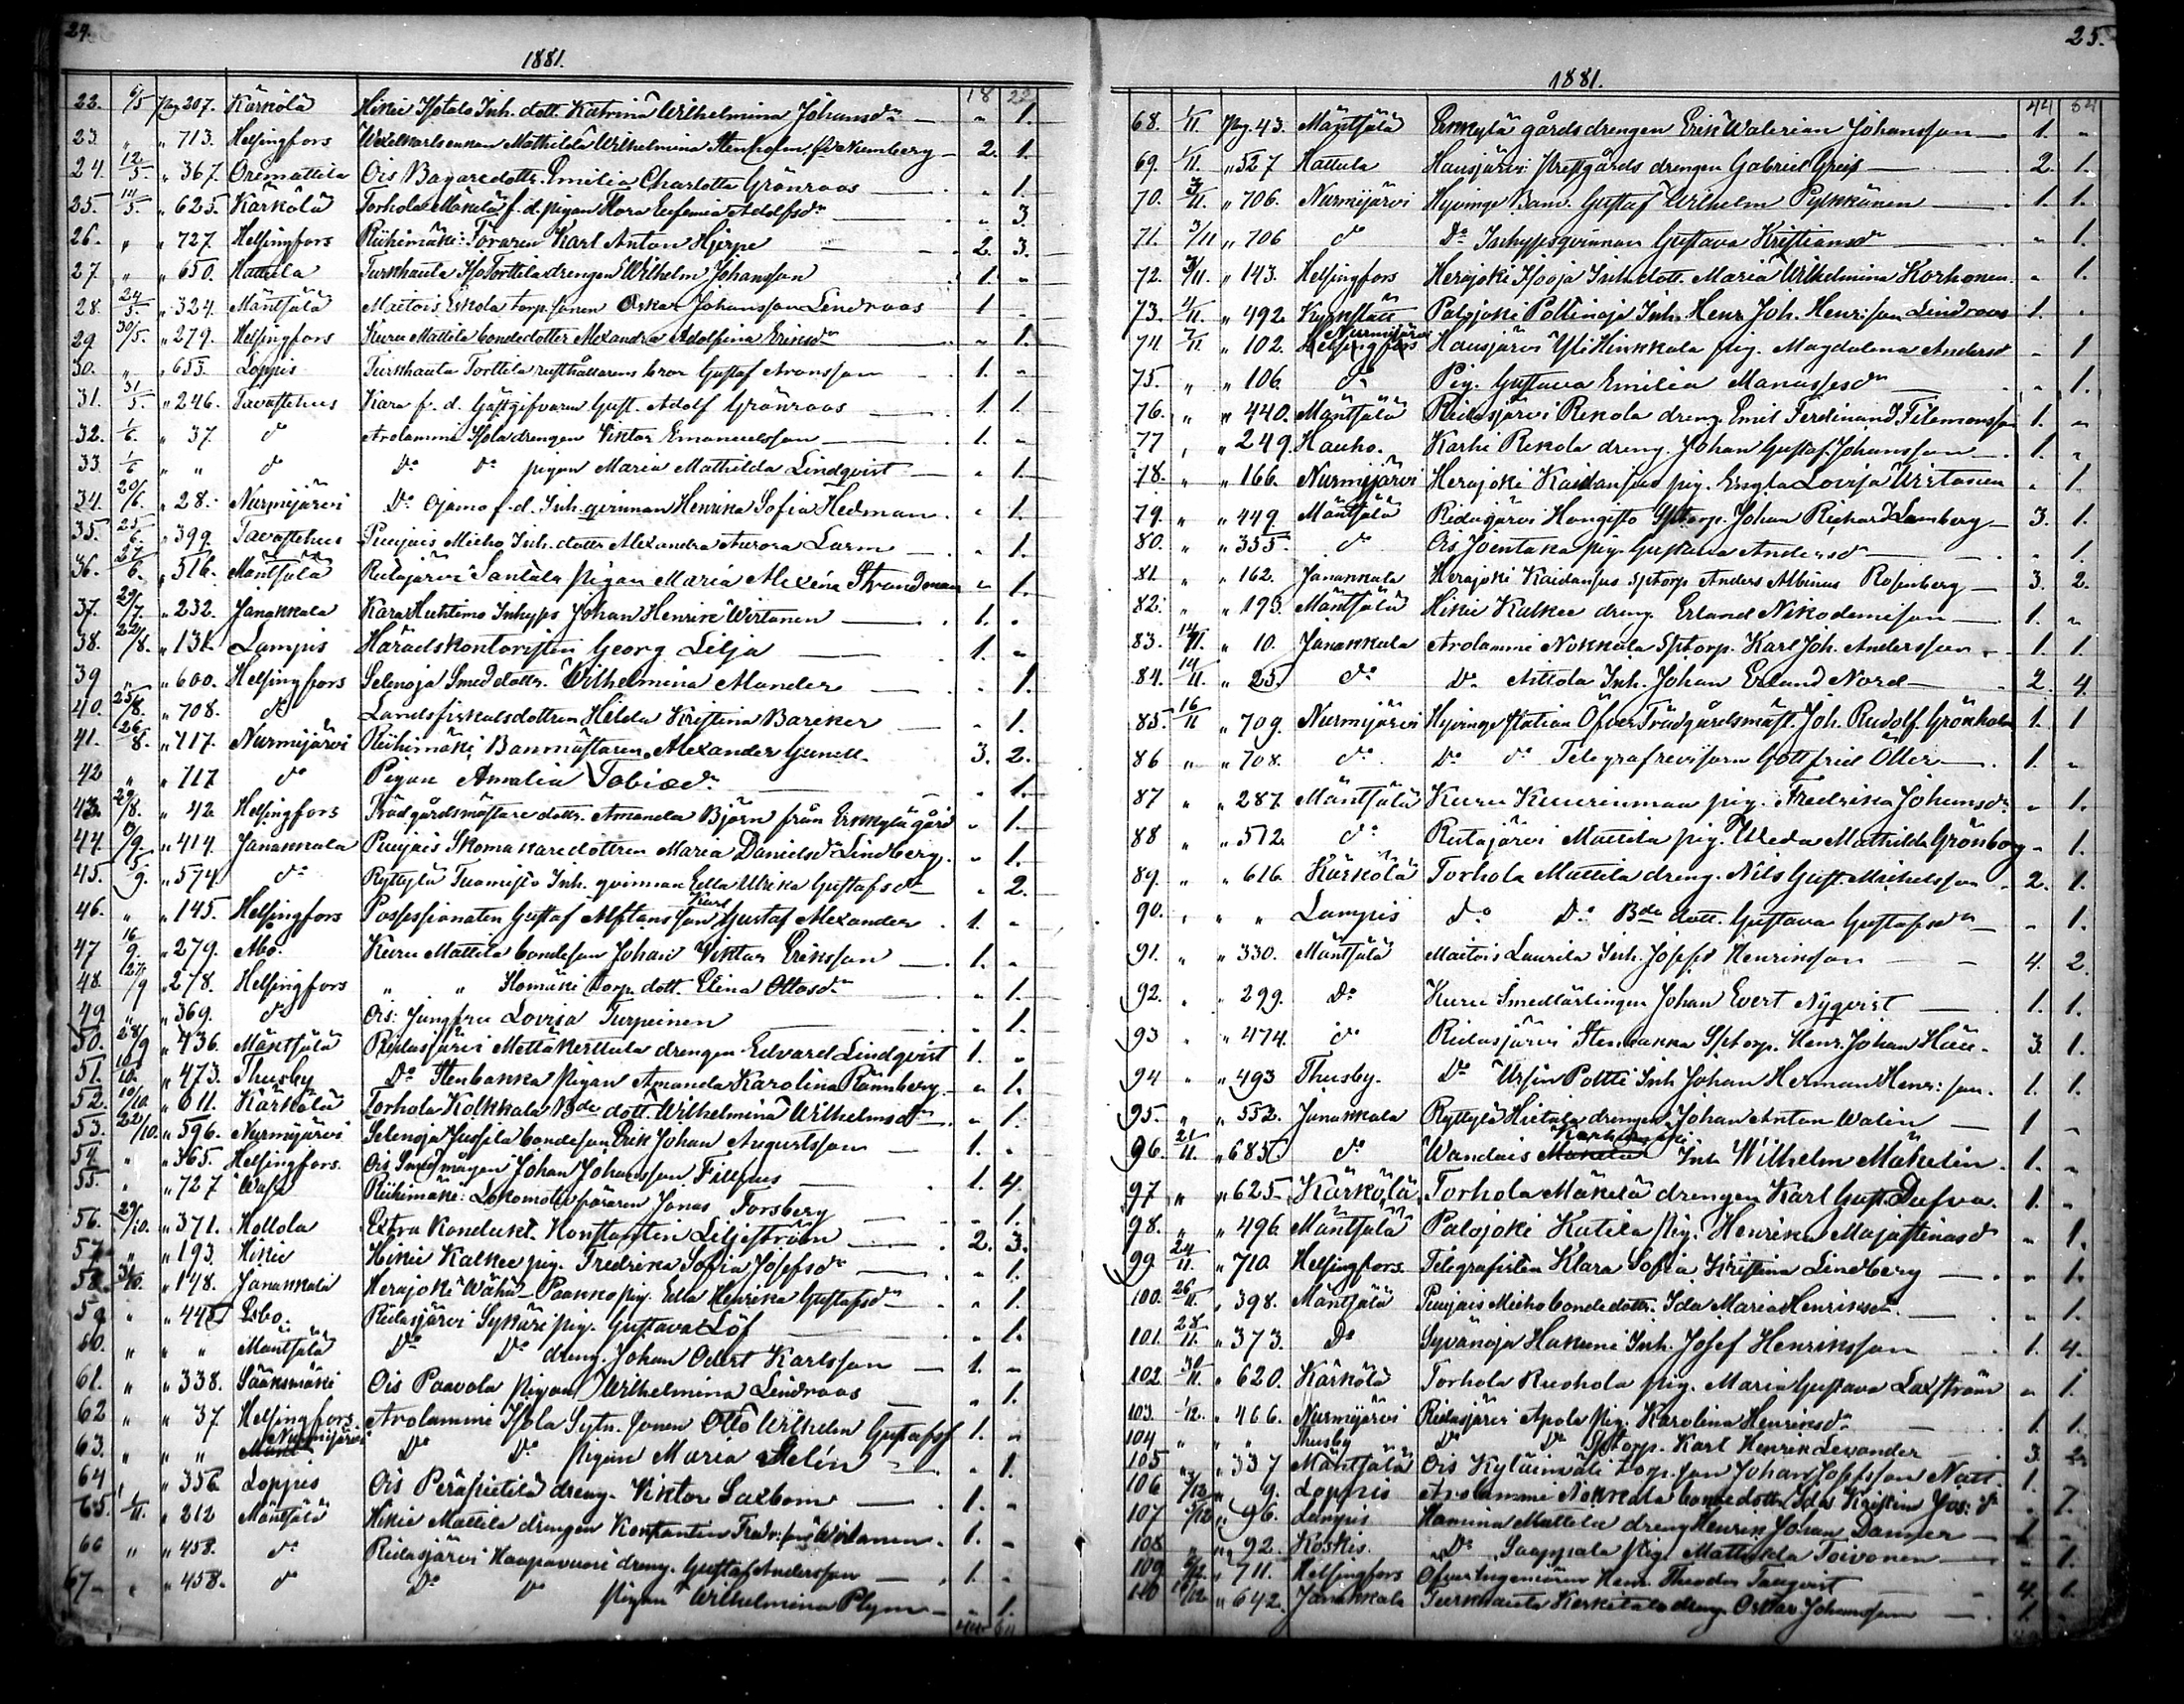 24.
1881.
18 22
22. 6/5 Pag 207. Kärkölä Hikiä Isotalo Inh. dott. Katrina Wilhelmina Johansdr " 1.
23. " " 713. Helsingfors Mathilda Wilhelmina Stenholm, f. 2. 1.
24. 12/5 " 367. Orimattila Ois Bagaredottr. Emilia Charlotta Grönroos " 1.
25. 14/5. " 625. Kärkölä Torhola Mäkelä f. d. pigan Flora Eufemia Adolfsdr " 3.
26. " " 727. Helsingfors Riihimäki: Karl Anton Hjerpe 2. 3.
27. " " 650. Hattula Turkhauta Iso Torttila drengen Wilhelm Johansson 1. "
28. 24/5. " 324. Mäntsälä Maitois Eskola torp. sonen Oskar Johansson Lindroos 1 "
29. 30/5. " 279. Helsingfors Kuru Mattila bondedotter Alexandra Adolfina Eriksdr " 1.
30. " " 653. Loppis Turkhauta Torttila rusthållarens bror Gustaf Aronsson 1. "
31. 31/5. " 246. Tavastehus Kara f. d. Gästgifvaren Gust. Adolf Grönroos 1. 1.
32. 1/6. " 37. do Arolammi Isola drengen Viktor Emanuelsson 1. "
33. 1/6 " " do Do Do pigan Maria Mathilda Lindqvist " 1.
34. 20/6. " 28. Nurmijärvi Do Ojamo f. d. Inh. qvinnan Henrika Sofia Hedman " 1.
35. 25/6. " 399. Tavastehus Puujais Mieho Inh. dottr. Alexandra Aurora Lurm " 1.
36. 27/6. " 516. Mäntsälä Ridasjärvi Santala Pigan Maria Alexina Strandman " 1.
37. 29/7. " 232. Janakkala Kara Huhtimo Inhyss Johan Henrik Wirtanen 1. "
38. 22/8. " 131. Lampis Häradskontoristen Georg Lilja 1. "
39 " " 600. Helsingfors Selenoja Smed dottr. Wilhelmina Mander " 1.
40. 25/8. " 708. do Landsfiskalsdottren Hilda Kristina Barcker " 1.
41. 26/8. " 717. Nurmijärvi Riihimäki Banmästaren Alexander Gunell 3. 2.
42 " " 717 do Pigan Amalia Tobiasdr " 1.
43. 29/8. " 42 Helsingfors Trädgårdsmästare dottr. Amanda Björn från Erkkylä gård " 1.
44. /9. " 414. Janakkala Puujais Skomakaredottren Maria Danielsdr Lindberg " 1.
45. 5/9. " 574 do Ryttylä Tuomisto Inh. qvinnan Ulrika Gustafsdr " 2.
46. " " 145. Helsingfors Possessionaten Gustaf Alftans son Karl Gustaf Alexander 1. "
47 16/9. " 279. Åbo. Kuru Mattila bondeson Johan Viktor Eriksson 1. "
48. 27/9 " 278. Helsingfors " " torp. dott. Elina Ottosdr " 1.
49. " " 369. do Ois: Jungfru Lovisa Turpeinen " 1.
50. 28/9 " 436. Mäntsälä Ridasjärvi Mettäkerttula drengen Edvard Lindqvist 1. "
51. 10/10. " 473. Thusby Do Stenbacka Pigan Amanda Karolina Rännberg " 1.
52. 10/10. " 611. Kärkölä Torhola Kolkkala Bde dott. Wilhelmina Wilhelmsdr " 1.
53. 22/10. " 596. Nurmijärvi Selenoja Jussila bondeson Erik Johan Augustsson 1. "
54. " " 365. Helsingfors. Ois Johan Johansson Filppus 1. 4.
55. " " 727 Wasa Riihimäki: Lokomotivföraren Jonas Forsberg " 1.
56. 29/10. " 371. Hollola Extra Kondukt. Konstantin Liljeström 2. 3.
57. " " 193. Hikiä Hikiä Kalkee pig. Fredrika Sofia Josefsdr " 1.
58. 31/10. " 148. Janakkala Herajoki Wähä-Paakko pig. Henrika Gustafsdr " 1.
59. " " 448 Esbo. Ridasjärvi Sykäri pig. Gustava Löf " 1.
60. " " " Mäntsälä Do Do dreng. Johan Karlsson 1. "
61. " " 338. Sääksmäki Ois Paavola Pigan Wilhelmina Lindroos " 1.
62 " " 37 Helsingfors. Arolammi Isola Sytn. sonen Otto Wilhelm Gustafss 1. "
63. " " " Nurmijärvi Do Do Pigan Maria Stelin " 1.
64 " " 356. Loppis Ois Peräpietilä dreng. Viktor Saxbom 1. "
65. 1/11. " 212 Mäntsälä Hikiä Mattila drengen Konstantin Fredr:son Wirtanen 1. "
66 " " 458. do Ridasjärvi Haapavuori dreng. Gustaf Andersson 1. "
67 " " 458. do Do Do Pigan Wilhelmina Plym " 1.
44 64
25.
1881.
44 64
68. 1/11 Pag. 43. Mäntsälä Erkkylä gårds drengen Erik Walerian Johansson 1. "
69. 1/11. " 527 Hattula Hausjärvi: Prestgårds drengen Gabriel Greis 2. 1.
70. 3/11. " 706. Nurmijärvi Hyvinge Banv. Gustaf Wilhelm Pylkkänen 1. 1.
71. 3/11 " 706 do Do Inhysesqvinnan Gustava Kristiansdr " 1.
72. 3/11. " 143. Helsingfors Herajoki Isooja Inh. dott. Maria Wilhelmina Korhonen " 1.
73. 4/11. " 492. Kyrkslätt Palojoki Pollinoja Inh. Henr. Joh. Henriksson Lindroos 1. "
74 7/11 " 102. Helsingfors Nurmijärvi Hausjärvi Yli Hinkkala pig. Magdalena Andersd " 1
75. " " 106. do Pig. Gustava Emilia Manassesdr " 1.
76. " " 440. Mäntsälä Ridasjärvi Rekola dreng. Emil Ferdinand Filemonsson 1. "
77 " 249. Hauho. Karhi Rekola dreng. Johan Gustaf Johansson 1. "
78. " " 166. Nurmijärvi Herajoki Kaidansuo pig. Engla Lovisa Wirtanen " 1.
79. " " 449 Mäntsälä Ridasjärvi Hongisto Sptorp. Johan Richard Lamberg 3. 1.
80. " " 355. do Ois Joentaka pig. Gustava Andersdr " 1.
81. " " 162. Janakkala Herajoki Kaidansuo Sptorp Anders Albinus Rosenberg 3. 2.
82. " " 193. Mäntsälä Hikiä Kalkee dreng. Erland Nikodemisson 1. "
83. 14/11. " 10. Janakkala Arolammi Nokkala Sptorp. Karl Joh. Andersson 1. 1.
84. 14/11. " 25. do Do Aittola Inh. Johan Erland Nord 2. 4.
85. 16/11 " 709. Nurmijärvi Hyvinge station Öfver Trädgårdsmäst. Joh. Rudolf Grönholm 1. 1
86 " " 708. do Do do Telegrafrevisorn Gottfried Öller 1. "
87 " " 287. Mäntsälä Kuru Kuurinmaa pig. Fredrika Johansdr " 1.
88 " " 512. do Ridasjärvi Mattila pig. Mathilda Grönborg " 1.
89. " " 616. Kärkölä Torhola Mattila dreng. Nils Gust. Michelsson 2. 1.
90. " " " Lampis do Do Bde dott. Gustava Gustafsdr " 1.
91. " " 330. Mäntsälä Maitois Laurila Inh. Josef Henriksson 4. 2.
92. " " 299. Do Kuru Smedlärlingen Johan Evert Nyqvist 1. 1.
93 " " 474. do Ridasjärvi Stenbacka Sptorp. Henr. Johan 3. 1.
94 " " 493 Thusby. Do Ursin Poltti Inh Johan Herman Henr:son. 1. 1.
95. " " 552. Janakkala Ryttylä Hietala drengen Johan Anton Walin 1 "
96. 21/11. " 685. do Wandais Inh Wilhelm Mäkelin. 1. "
97 " " 625 Kärkölä Torhola Mäkelä drengen Karl Gust. Dufva. 1. "
98. " " 496. Mäntsälä Palojoki Katila Pig. Henrika Majastinasd " 1.
99. 24/11. " 710. Helsingfors. Telegrafisten Klara Sofia Kristina Lindberg " 1.
100. 26/11. " 398. Mäntsälä Puujais Mieho bondedottr. Ida Maria Henriksdr " 1.
101. 28/11. " 373. Do Syvänoja Hakuni Inh. Josef Henriksson 1. 4.
102. 30/11. " 620. Kärkölä Torhola Ruohola pig. Maria Gustava Laxström " 1.
103. 1/12. " 466. Nurmijärvi Ridasjärvi Apola Pig. Karolina Henriksdr 1. 1.
104 " " " Thusby Do Do Sptorp. Karl Henrik Levander 3. 2.
105 " " 337 Mäntsälä Ois Kyläinväli torp. son Johan Josefsson Natt 1. "
106 5/12 " 9. Loppis Arolammi Nokkala bondedottr. Ida Kristina Jos:dr " 1.
107 5/12 " 96. Lampis Hamina Mattila dreng Henrik Johan Danser 1 "
108. " " 92. Koskis. Do Saappala Pig. Mathilda Toivonen " 1.
109. 6/12. " 711. Helsingfors Öfver Ingeniören Henr. Theodor Tallqvist 4. 1.
110 10/12 " 642. Janakkala Turkhauta Kerkitala dreng Oskar Johansson 1. "